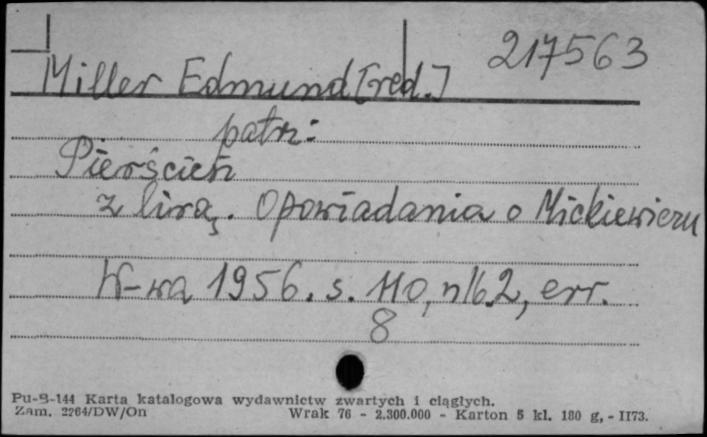 217563
Miller Edmund [red.]
patrz:
Pierścień
z lirą. Opowiadania o Mickiewiczu
W-wa 1956. s. 110, nlb. 2, err.
8
Pu-S-144 Karta katalogowa wydawnictw zwartych i ciągłych.
Zam. 2264/DW/On Wrak 76 - 2.300.000 - Karton 5 kl. 180 g, - II73.